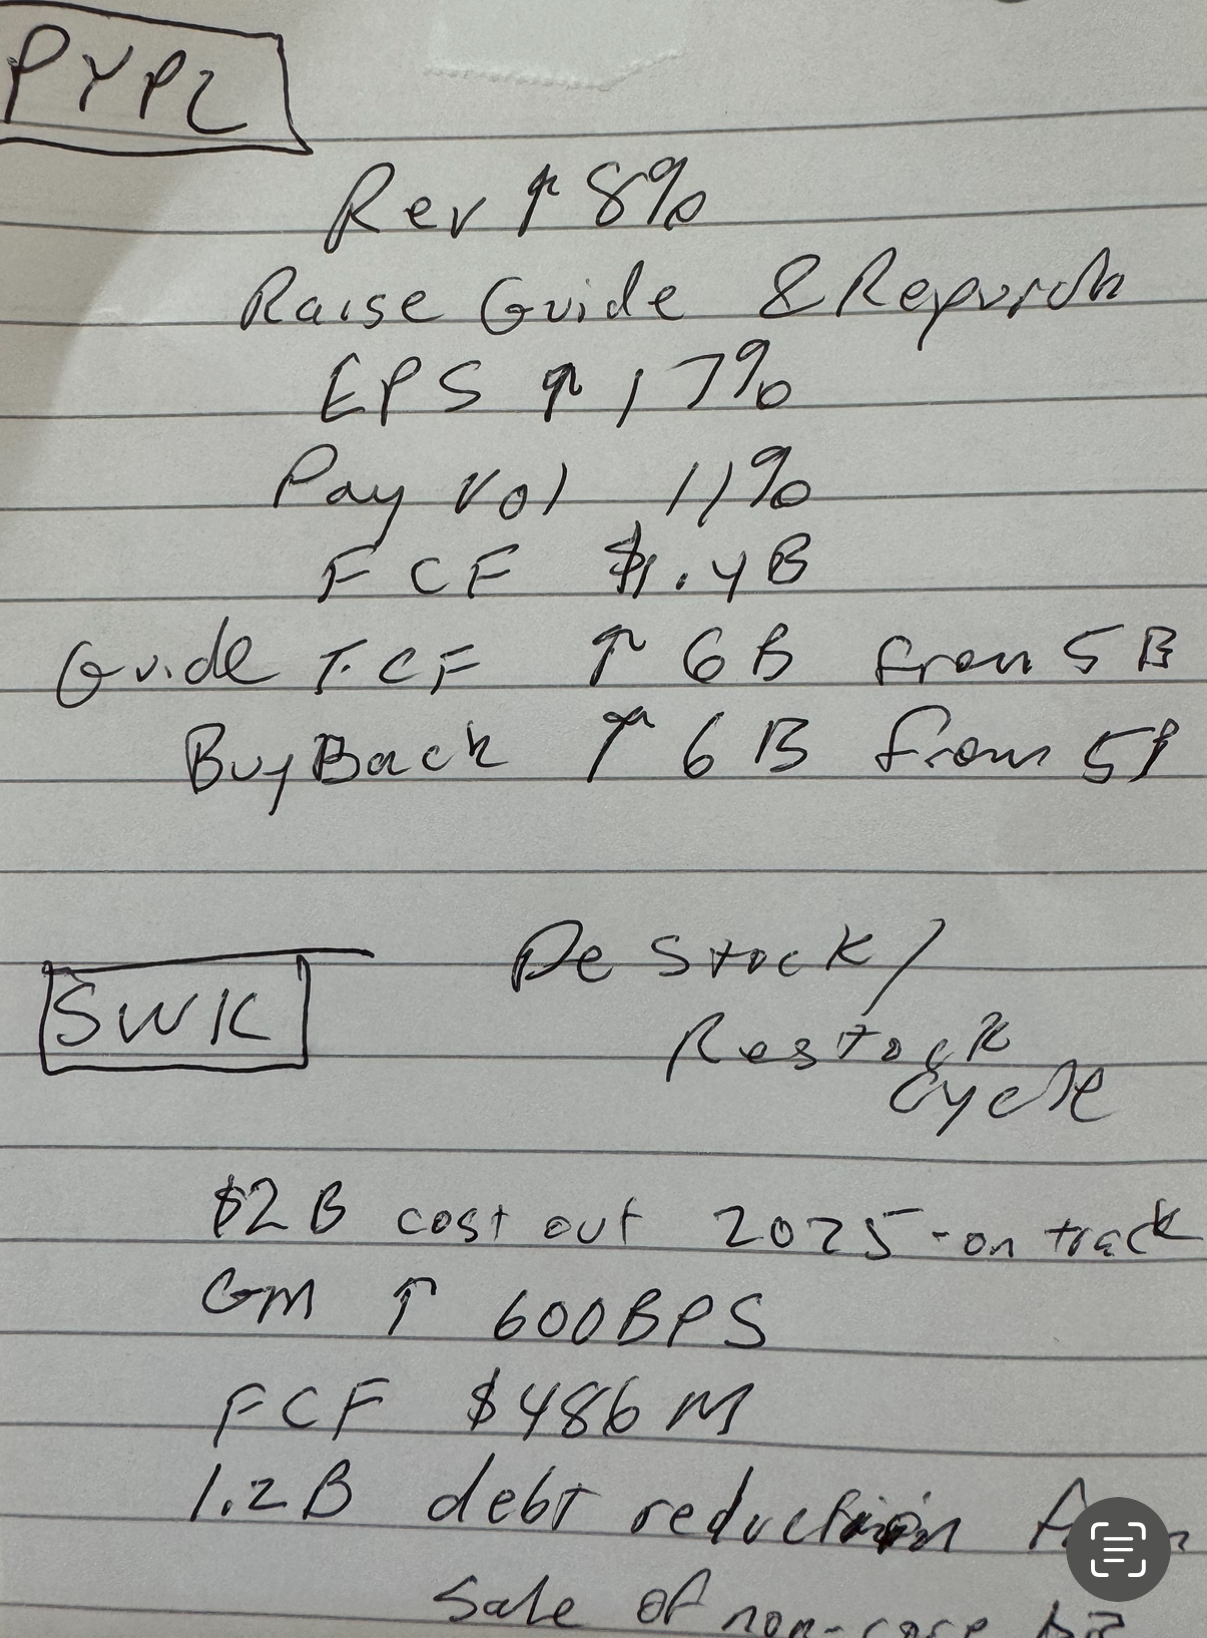 PYPL
Rev ↑ 8%
Raise Guide & Repurch
EPS ↑ 17%
Pay Vol 11%
FCF $1.4B
Guide FCF ↑ 6B from 5B
BuyBack ↑ 6B from 5B
SWK
DeStock/
Restock
Cycle
$2B cost out 2025 - on track
GM ↑ 600BPS
FCF $486M
1.2B debt reduction from
Sale of non-core